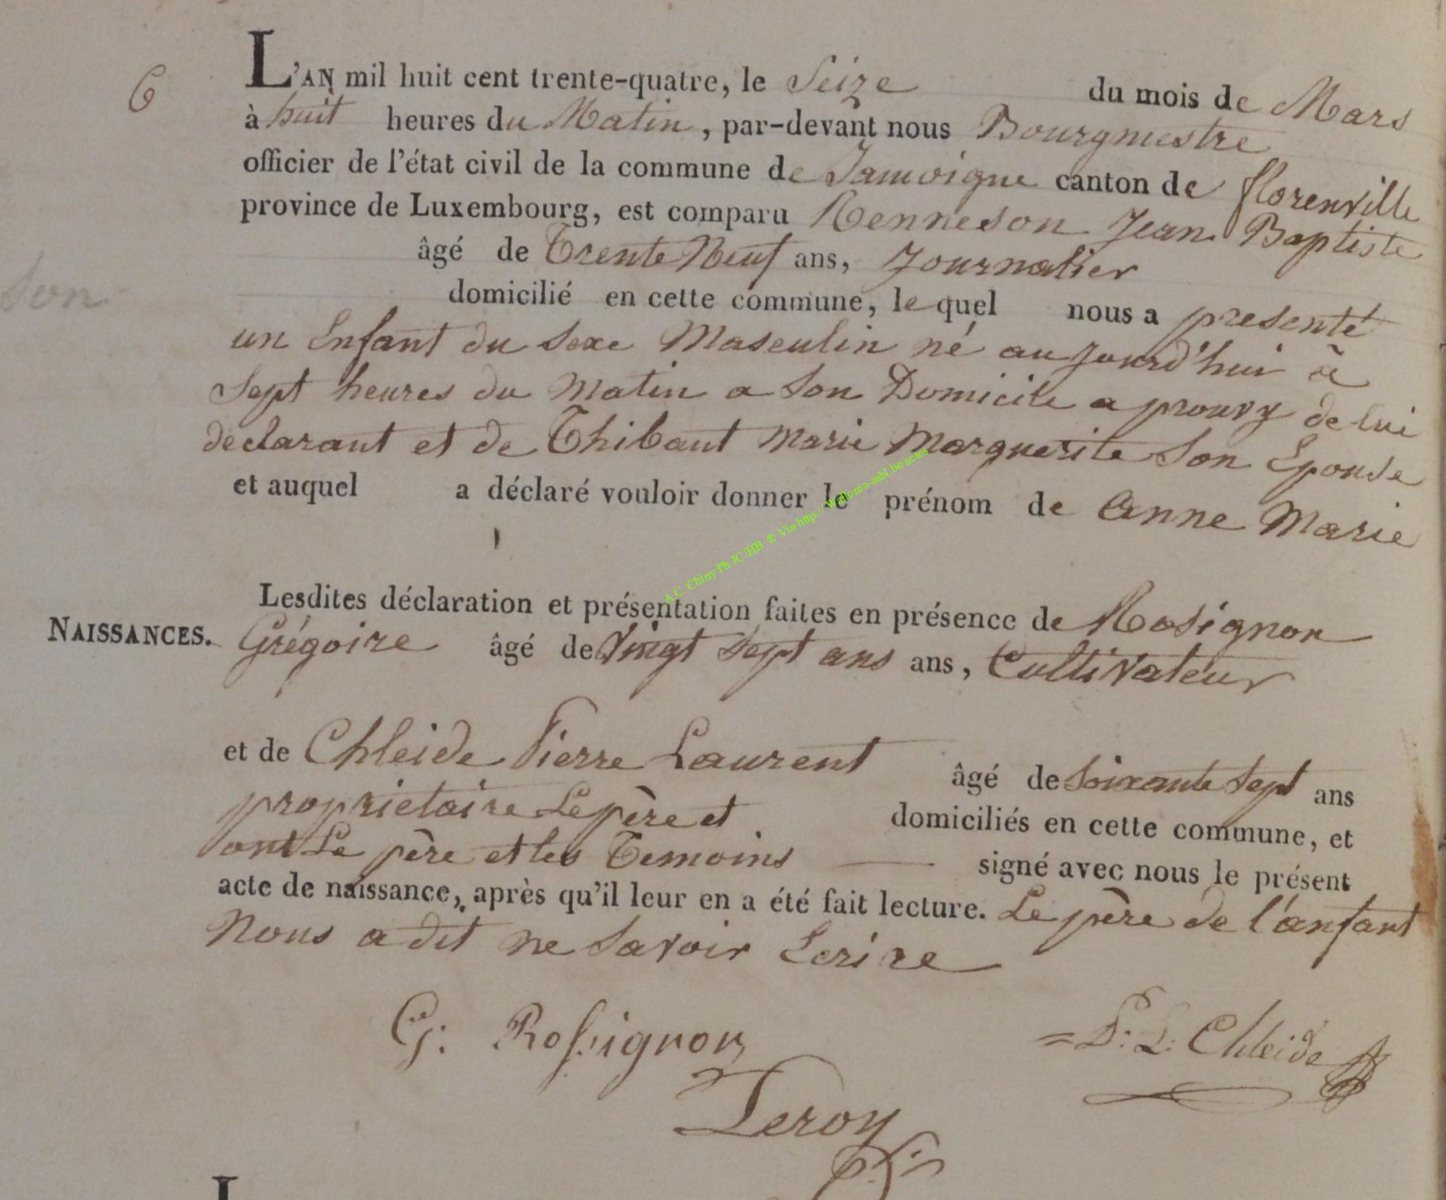 6
L'AN mil huit cent trente-quatre, le Seize du mois de Mars
à huit heures du Matin, par-devant nous Bourgmestre
officier de l'état civil de la commune de Jamoigne canton de florenville
province de Luxembourg, est comparu Renneson Jean Baptiste
âgé de Trente Neuf ans, Journalier
domicilié en cette commune, lequel nous a presenté
un Enfant du Sexe Masculin né aujourd'hui à
Sept heures du Matin a Son Domicile a prouvy de lui
declarant et de Thibaut Marie Marguerite Son Epouse
et auquel a déclaré vouloir donner le prénom de Anne Marie
Lesdites déclaration et présentation faites en présence de Rosignon
NAISSANCES. Grégoire âgé de Vingt Sept ans ans, Cultivateur
et de Chleide Pierre Laurent âgé de Soixante Sept ans
proprietaire Le père et domiciliés en cette commune, et
ont Le père et les Temoins signé avec nous le présent
acte de naissance, après qu'il leur en a été fait lecture. Le père de l'anfant
Nous a dit ne Savoir Ecrire
G. Rossignon = P: L: Chleide
Leroy
Son
A.C. Chiny Ph JC HB ® Via http:
L